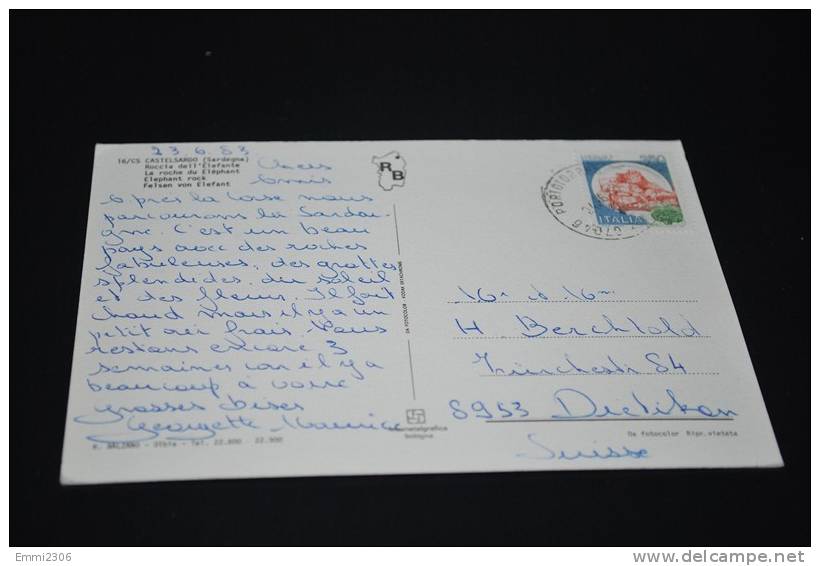 23.6.83
16/CS CASTELSARDO (Sardegna)
Roccia dell'Elefante
La roche du Eléphant
Elephant rock
Felsen von Elefant
RB
Chers
Amis
après la Corse nous
parcourons la Sardai-
gne. C'est un beau
pays avec des roches
fabuleuses, des grottes
splendides, du soleil
et des fleurs. Il fait
chaud mais il y a un
petit air frais. Nous
restons encore 3
semaines car il y a
beaucoup à voir
grosses bises
Georgette Maurice
Olbia - Tel. 22.800 - 22.900
DA FOTOCOLOR - VIERA
bologna
250
ITALIA
PORTOTORR
H. Berchtold
Zürcherstr 84
8953 Dietikon
Suisse
Da fotocolor Ripr. vietata
Emmi2306
delcampe.net